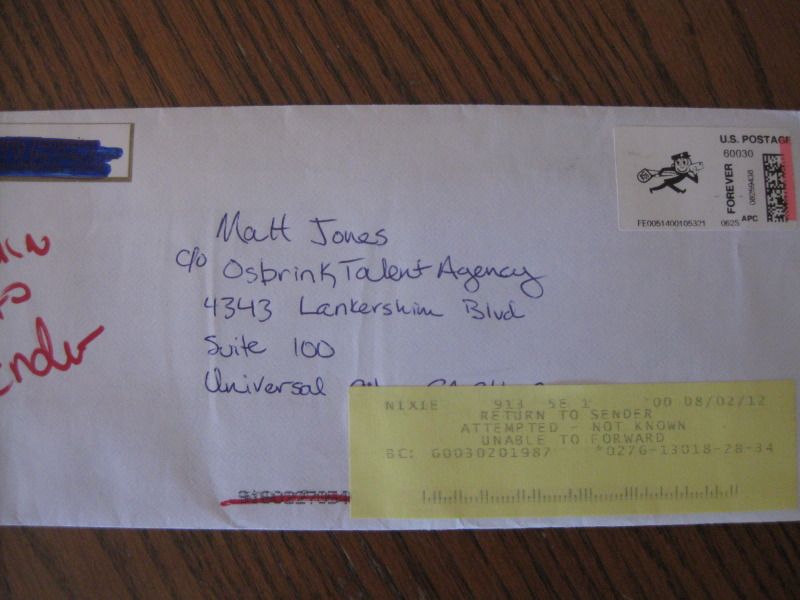 U.S. POSTAGE
60030
FOREVER
08259438
FE0051400105321
0625 APC
Matt Jones
c/o Osbrink Talent Agency
4343 Lankershim Blvd
Suite 100
Universal
ender
NIXIE 913 SE 1 00 08/02/12
RETURN TO SENDER
ATTEMPTED - NOT KNOWN
UNABLE TO FORWARD
BC: 60030201987 *0276-13018-28-34